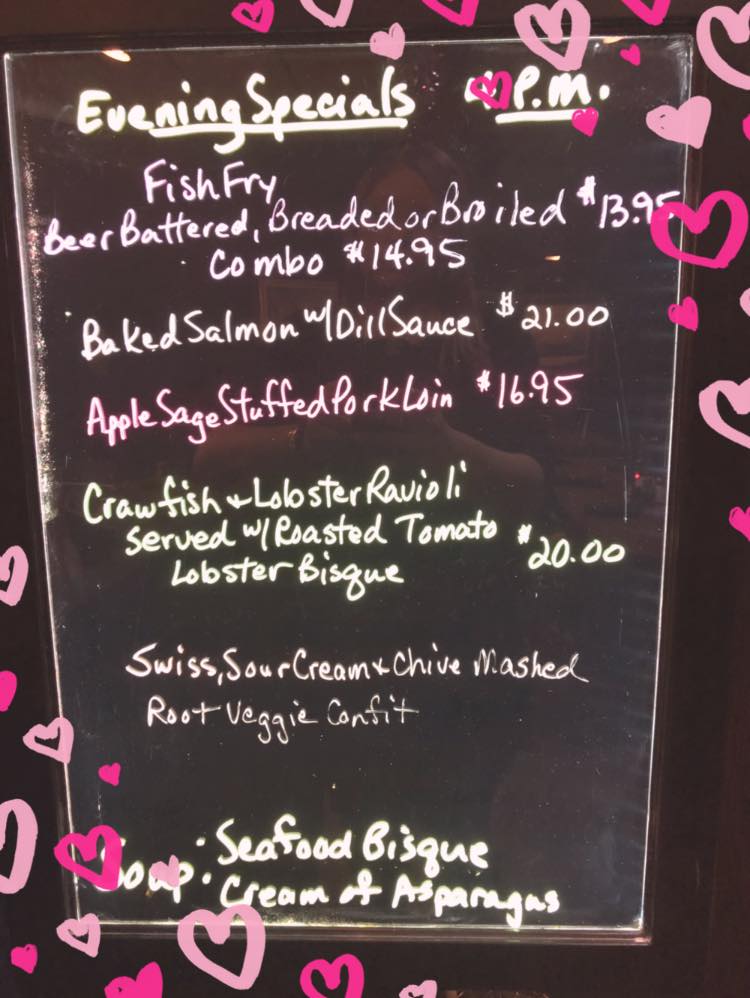 Evening Specials P.M.
Fish Fry
Beer Battered, Breaded or Broiled $13.95
Combo $14.95
Baked Salmon w/ Dill Sauce $21.00
Apple Sage Stuffed Pork Loin $16.95
Crawfish & Lobster Ravioli
Served w/ Roasted Tomato $20.00
Lobster Bisque
Swiss, Sour Cream & Chive Mashed
Root Veggie Confit
Soup · Seafood Bisque
· Cream of Asparagus